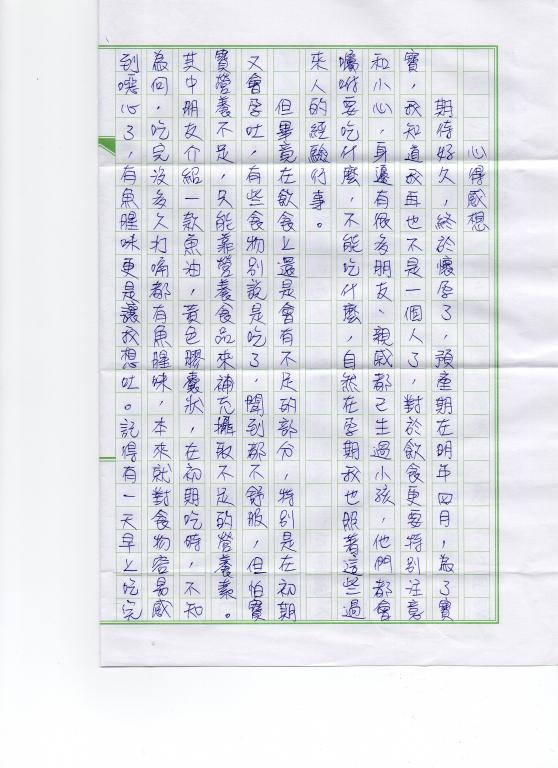 心得感想
期待好久，終於懷孕了，預產期在明年四月，為了寶
寶，我知道我再也不是一個人了，對於飲食更要特別注意
和小心，身邊有很多朋友、親戚都已生過小孩，他們都會
囑咐要吃什麼，不能吃什麼，自然在孕期我也服著這些過
來人的經驗行事。
但畢竟在飲食上還是會有不足的部分，特別是在初期
又會孕吐，有些食物別說是吃了，聞到都不舒服，但怕寶
寶營養不足，只能靠營養食品來補充攝取不足的營養素。
其中朋友介紹一款魚油，黃色膠囊狀，在初期吃時，不知
為何，吃完沒多久打嗝都有魚腥味，本來就對食物容易感
到噁心了，有魚腥味更是讓我想吐。記得有一天早上吃完